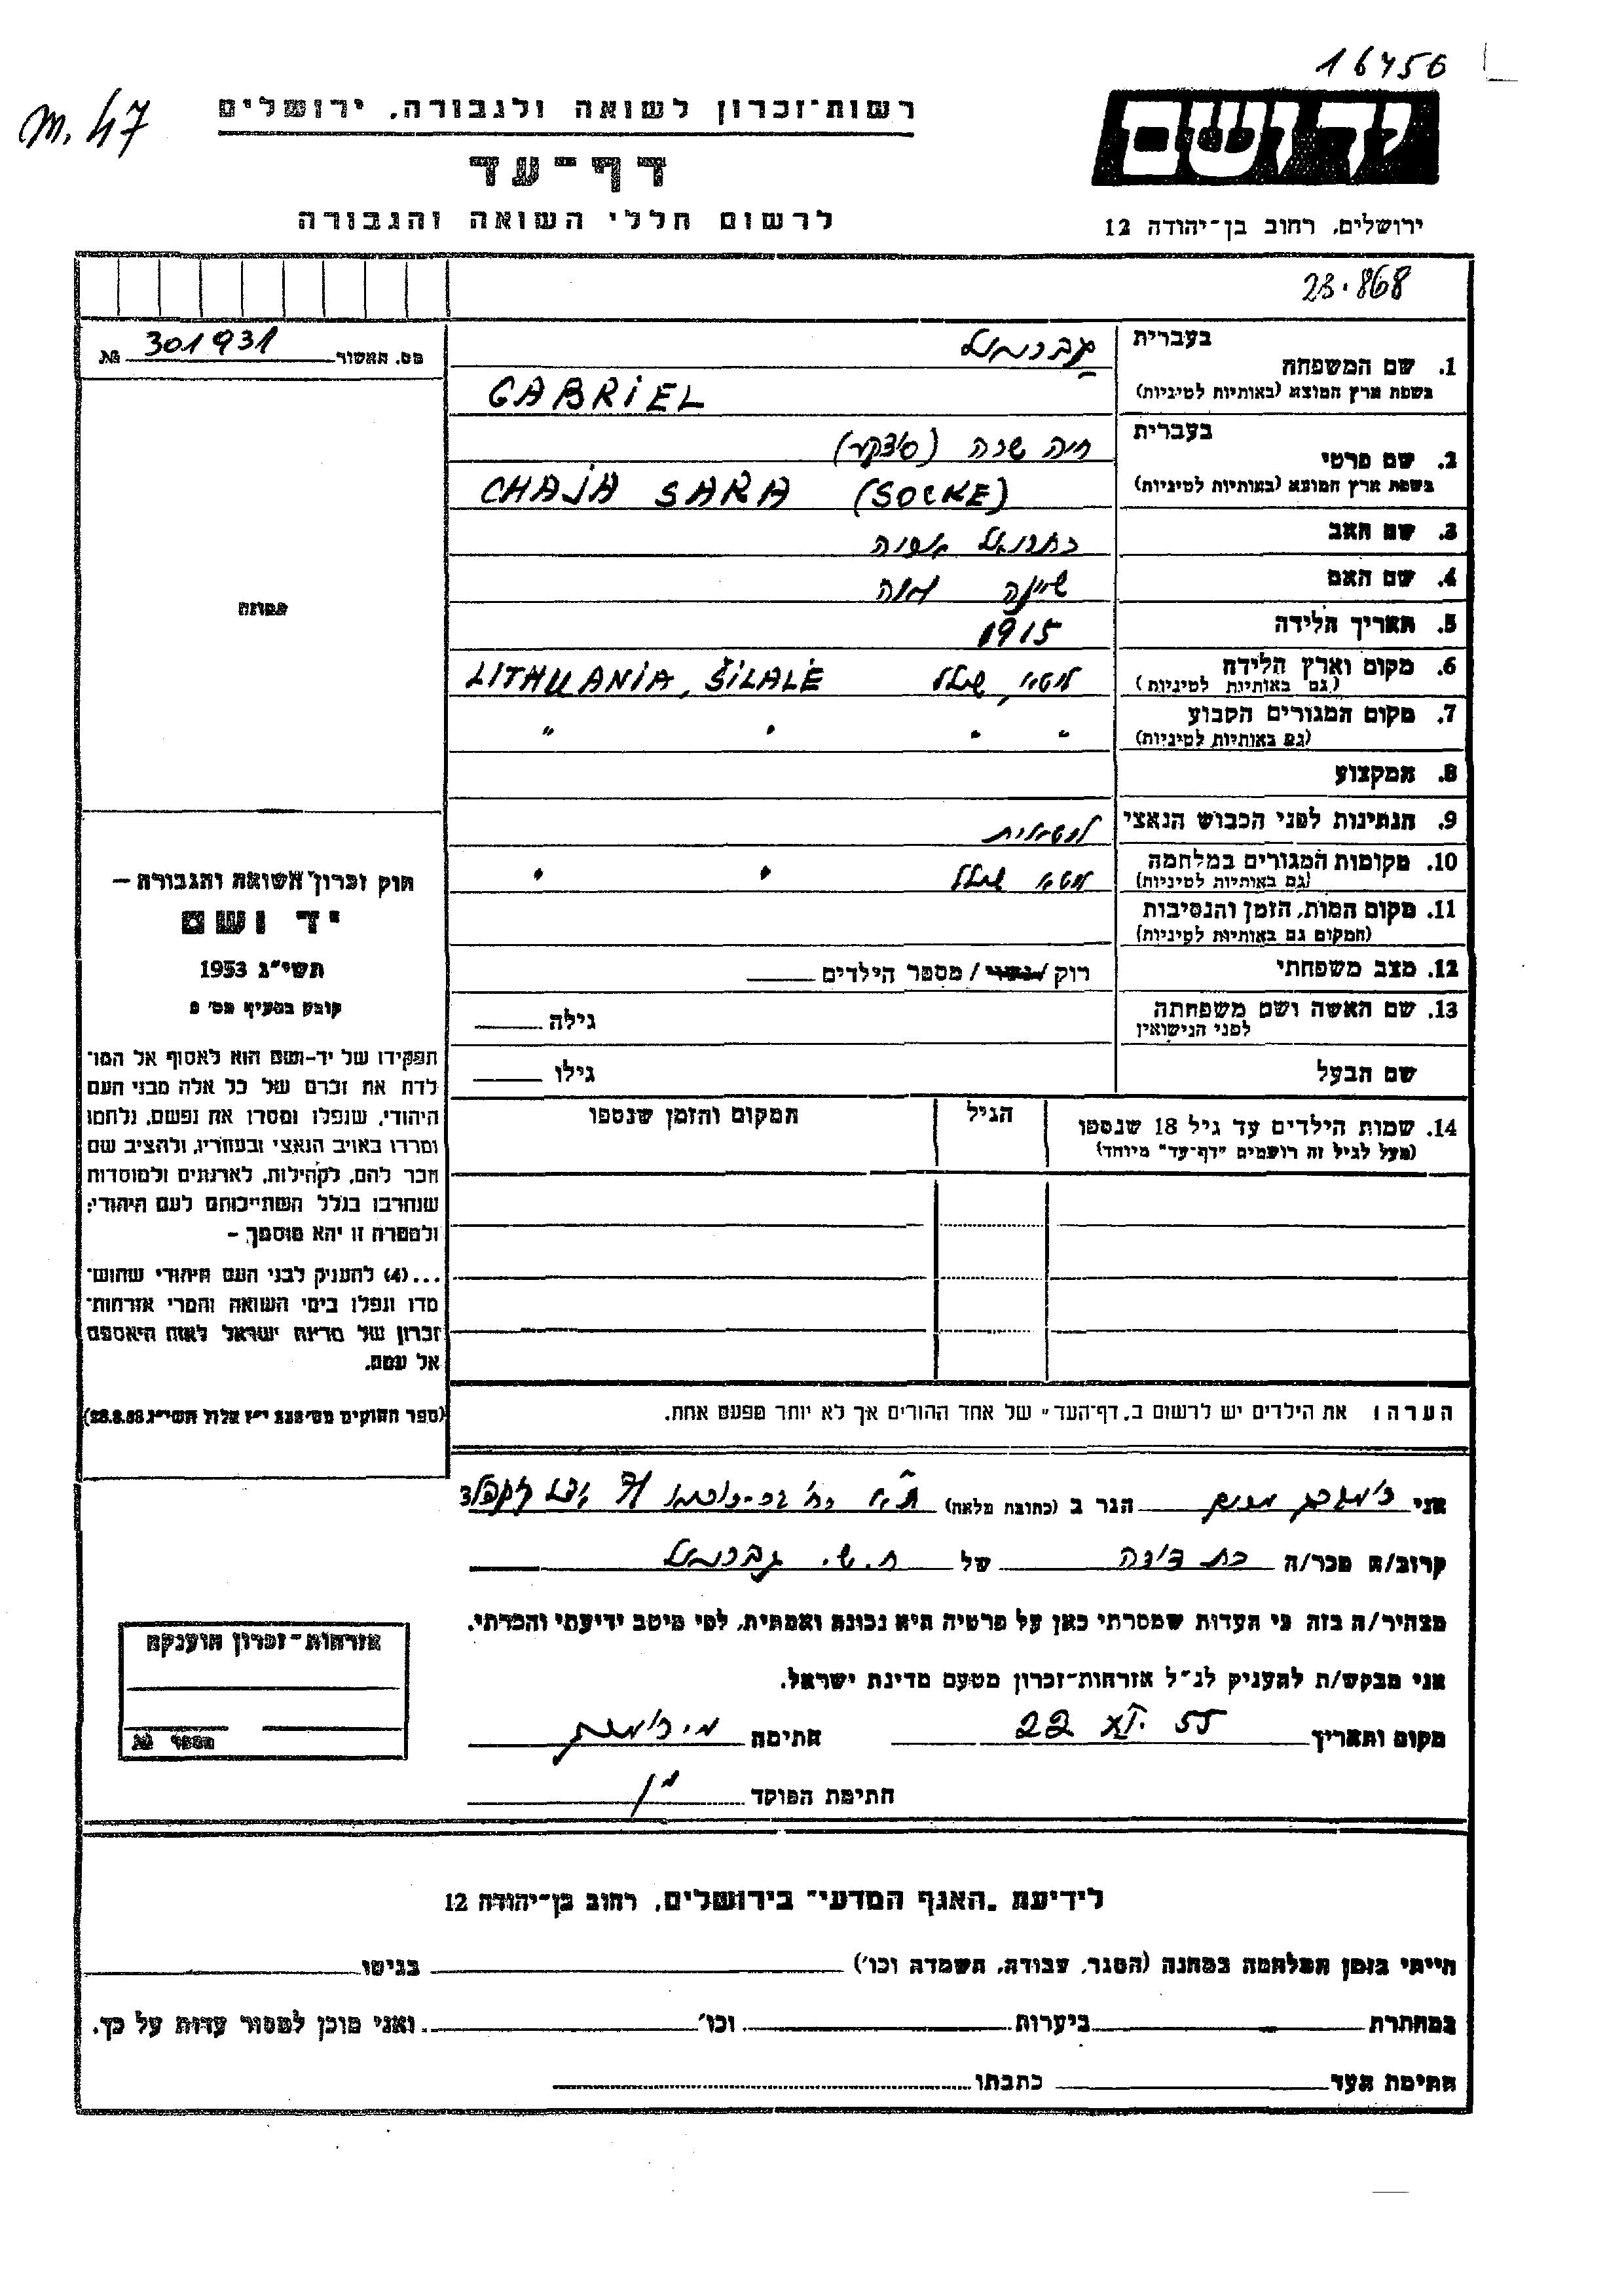 16456
m. 47
רשות־זכרון לשואה ולגבורה, ירושלים
יד ושם
דף־עד
לרשום חללי השואה והגבורה
ירושלים, רחוב בן־יהודה 12
23.868
מס. האשור № 301931
1. שם המשפחה
בעברית גבריאל
בשפת ארץ המוצא (באותיות לטיניות) GABRIEL
2. שם פרטי
בעברית חיה שרה (סוצקע)
בשפת ארץ המוצא (באותיות לטיניות) CHAJA SARA (SOCKE)
3. שם האב
4. שם האם
5. תאריך הלידה 1915
6. מקום וארץ הלידה ליטא, שילל LITHUANIA, ŠILALĖ
(גם באותיות לטיניות)
7. מקום המגורים הקבוע " " " "
(גם באותיות לטיניות)
8. המקצוע
9. הנתינות לפני הכבוש הנאצי ליטאית
10. מקומות המגורים במלחמה ליטא שילל " "
(גם באותיות לטיניות)
11. מקום המות, הזמן והנסיבות
(המקום גם באותיות לטיניות)
12. מצב משפחתי רוק / נשוי / מספר הילדים
13. שם האשה ושם משפחתה גילה
לפני הנישואין
שם הבעל גילו
14. שמות הילדים עד גיל 18 שנספו הגיל המקום והזמן שנספו
(מעל לגיל זה רושמים "דף־עד" מיוחד)
הערה: את הילדים יש לרשום ב„דף־העד" של אחד ההורים אך לא יותר מפעם אחת.
תמונה
חוק זכרון השואה והגבורה –
יד ושם
תשי״ג 1953
קובע בסעיף מס׳ 2
תפקידו של יד־ושם הוא לאסוף אל המו־
לדת את זכרם של כל אלה מבני העם
היהודי, שנפלו ומסרו את נפשם, נלחמו
ומרדו באויב הנאצי ובעוזריו, ולהציב שם
וזכר להם, לקהילות, לארגונים ולמוסדות
שנחרבו בגלל השתייכותם לעם היהודי;
ולמטרה זו יהא מוסמך –
...(4) להעניק לבני העם היהודי שהוש־
מדו ונפלו בימי השואה והמרי אזרחות־
זכרון של מדינת ישראל לאות היאספם
אל עמם.
אני הגר ב (כתובת מלאה)
קרוב/ה מכר/ה בת דודה של ח.ש. גבריאל
מצהיר/ה בזה כי העדות שמסרתי כאן על פרטיה היא נכונה ואמתית, לפי מיטב ידיעתי והכרתי.
אני מבקש/ת להעניק לנ״ל אזרחות־זכרון מטעם מדינת ישראל.
מקום ותאריך 22 XI. 55 חתימה
חתימת הפוקד
אזרחות־זכרון הוענקה
מספר №
לידיעת „האגף המדעי" בירושלים, רחוב בן־יהודה 12
הייתי בזמן המלחמה במחנה (הסגר, עבודה, השמדה וכו׳) בגיטו
במחתרת ביערות וכו׳ ואני מוכן למסור עדות על כך.
חתימת העד כתבתו